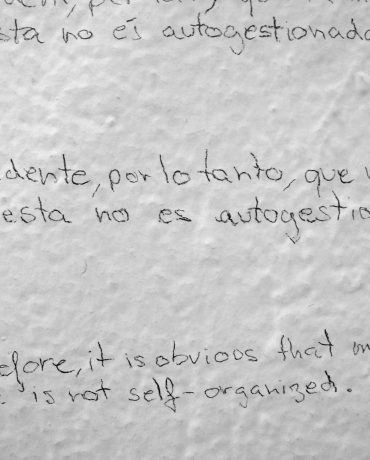 por lo que
esta no es autogestionada
dente, por lo tanto, que
esta no es autogestio
efore, it is obvious that
is not self-organized.